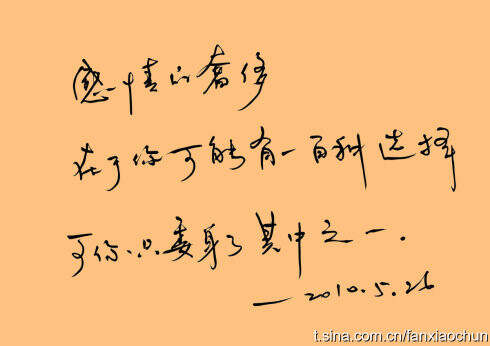 感情的奢侈
在于你可能有一百种选择
可你只委身了其中之一.
—2010.5.26
t.sina.com.cn/fanxiaochun